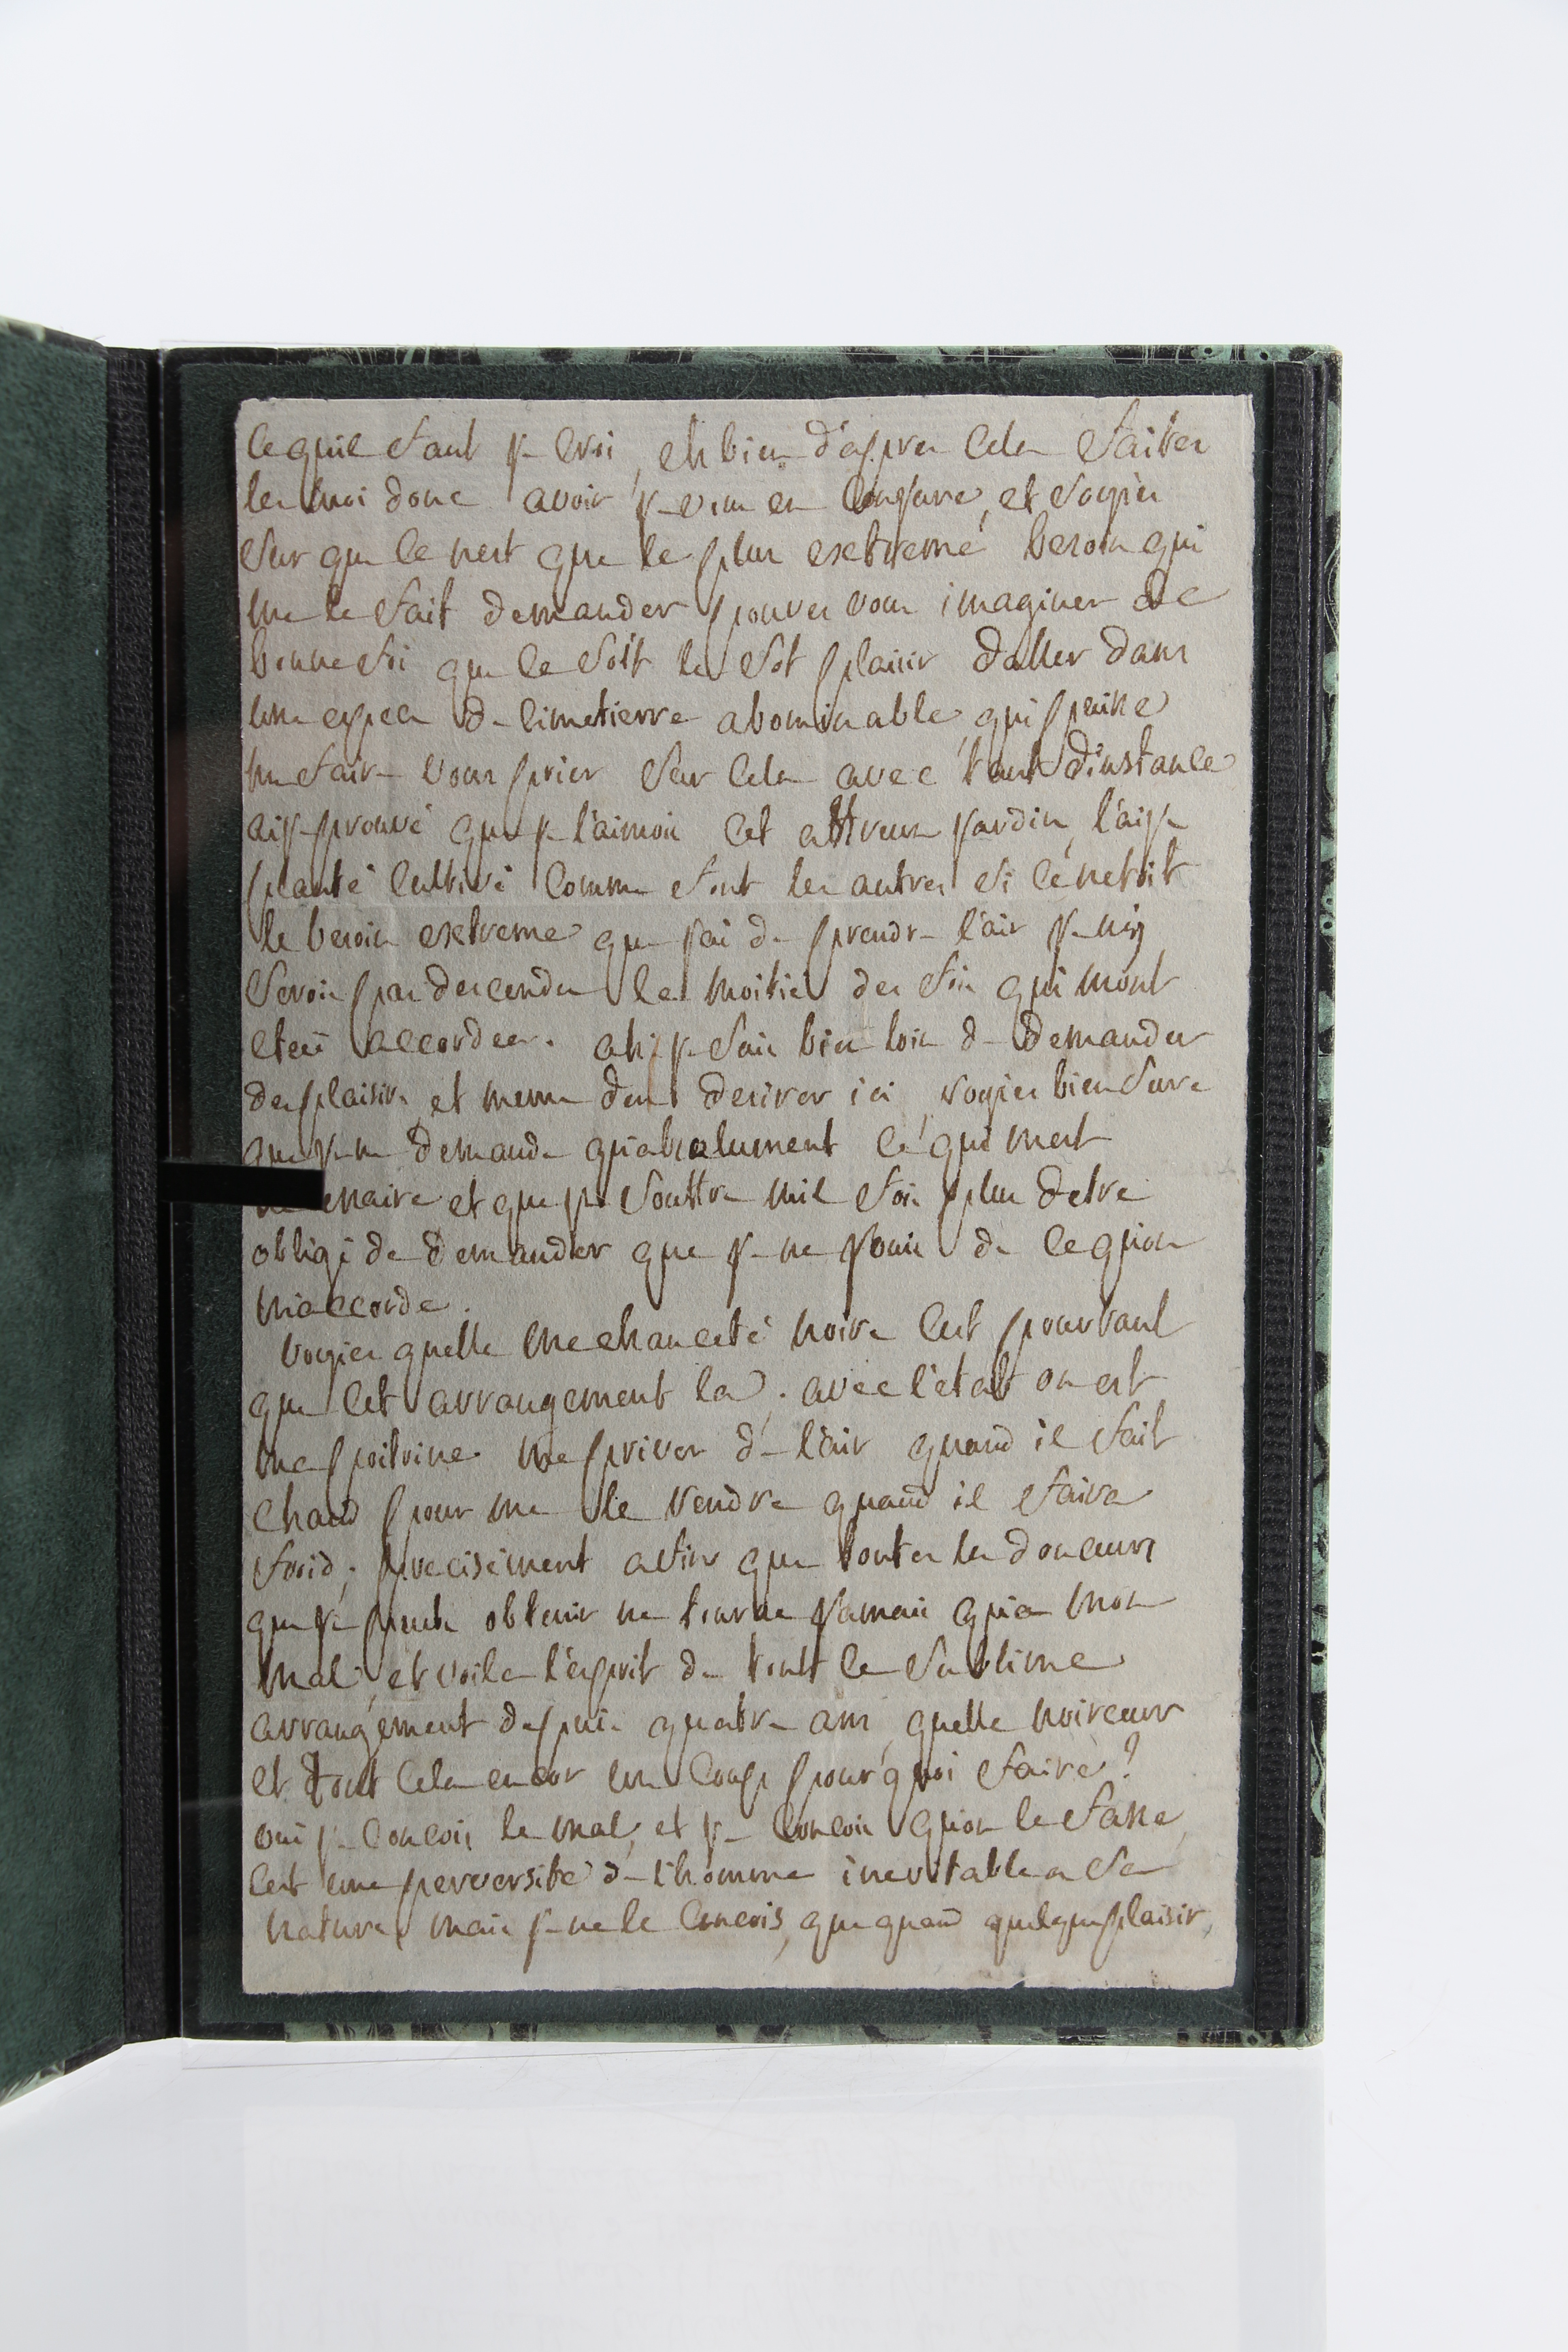 ce quil faut je croi, eh bien d'apres cela faites
les moi donc avoir je vous en conjure, et soyés
sur que ce nest que le plus exetreme besoin qui
me le fait demander pouvés vous imaginer de
bonne foi que ce soit le sot plaisir daller dans
une espece de cimetierre abominable qui puisse
me faire vous prier sur cela avec tant d'instance
ai je prouvé que je l'aimois cet affreux jardin, l'ai je
planté cultivé comme font les autres si ce netoit
le besoin exetreme que jai de prendre l'air je ny
serois pas descendu la moitié des fois qui mont
etées accordées. ah! je suis bien loin de demander
des plaisirs et meme den desirer ici, soyés bien sure
que je ne demande qu'absolument ce qui mest
necessaire et que je souffre mil fois plus detre
obligé de demander que je ne jouis de ce qu'on
m'accorde.
voyés quelle mechanceté noire cest pourtant
que cet arrangement la; avec l'etat ou est
ma poitrine me priver de l'air quand il fait
chaud pour me le rendre quand il faira
froid; precisement afin que toutes les douceurs
que je puisse obtenir ne tourne jamais qu'a mon
mal, et voila l'esprit de tout le sublime
arrangement depuis quatre ans quelle noirceur
et tout cela encor un coup pour quoi faire?
oui je concois le mal, et je concois qu'on le fasse,
cest une perversité de l'homme inevitable a sa
nature, mais je ne le concois, que quand quelque plaisir,